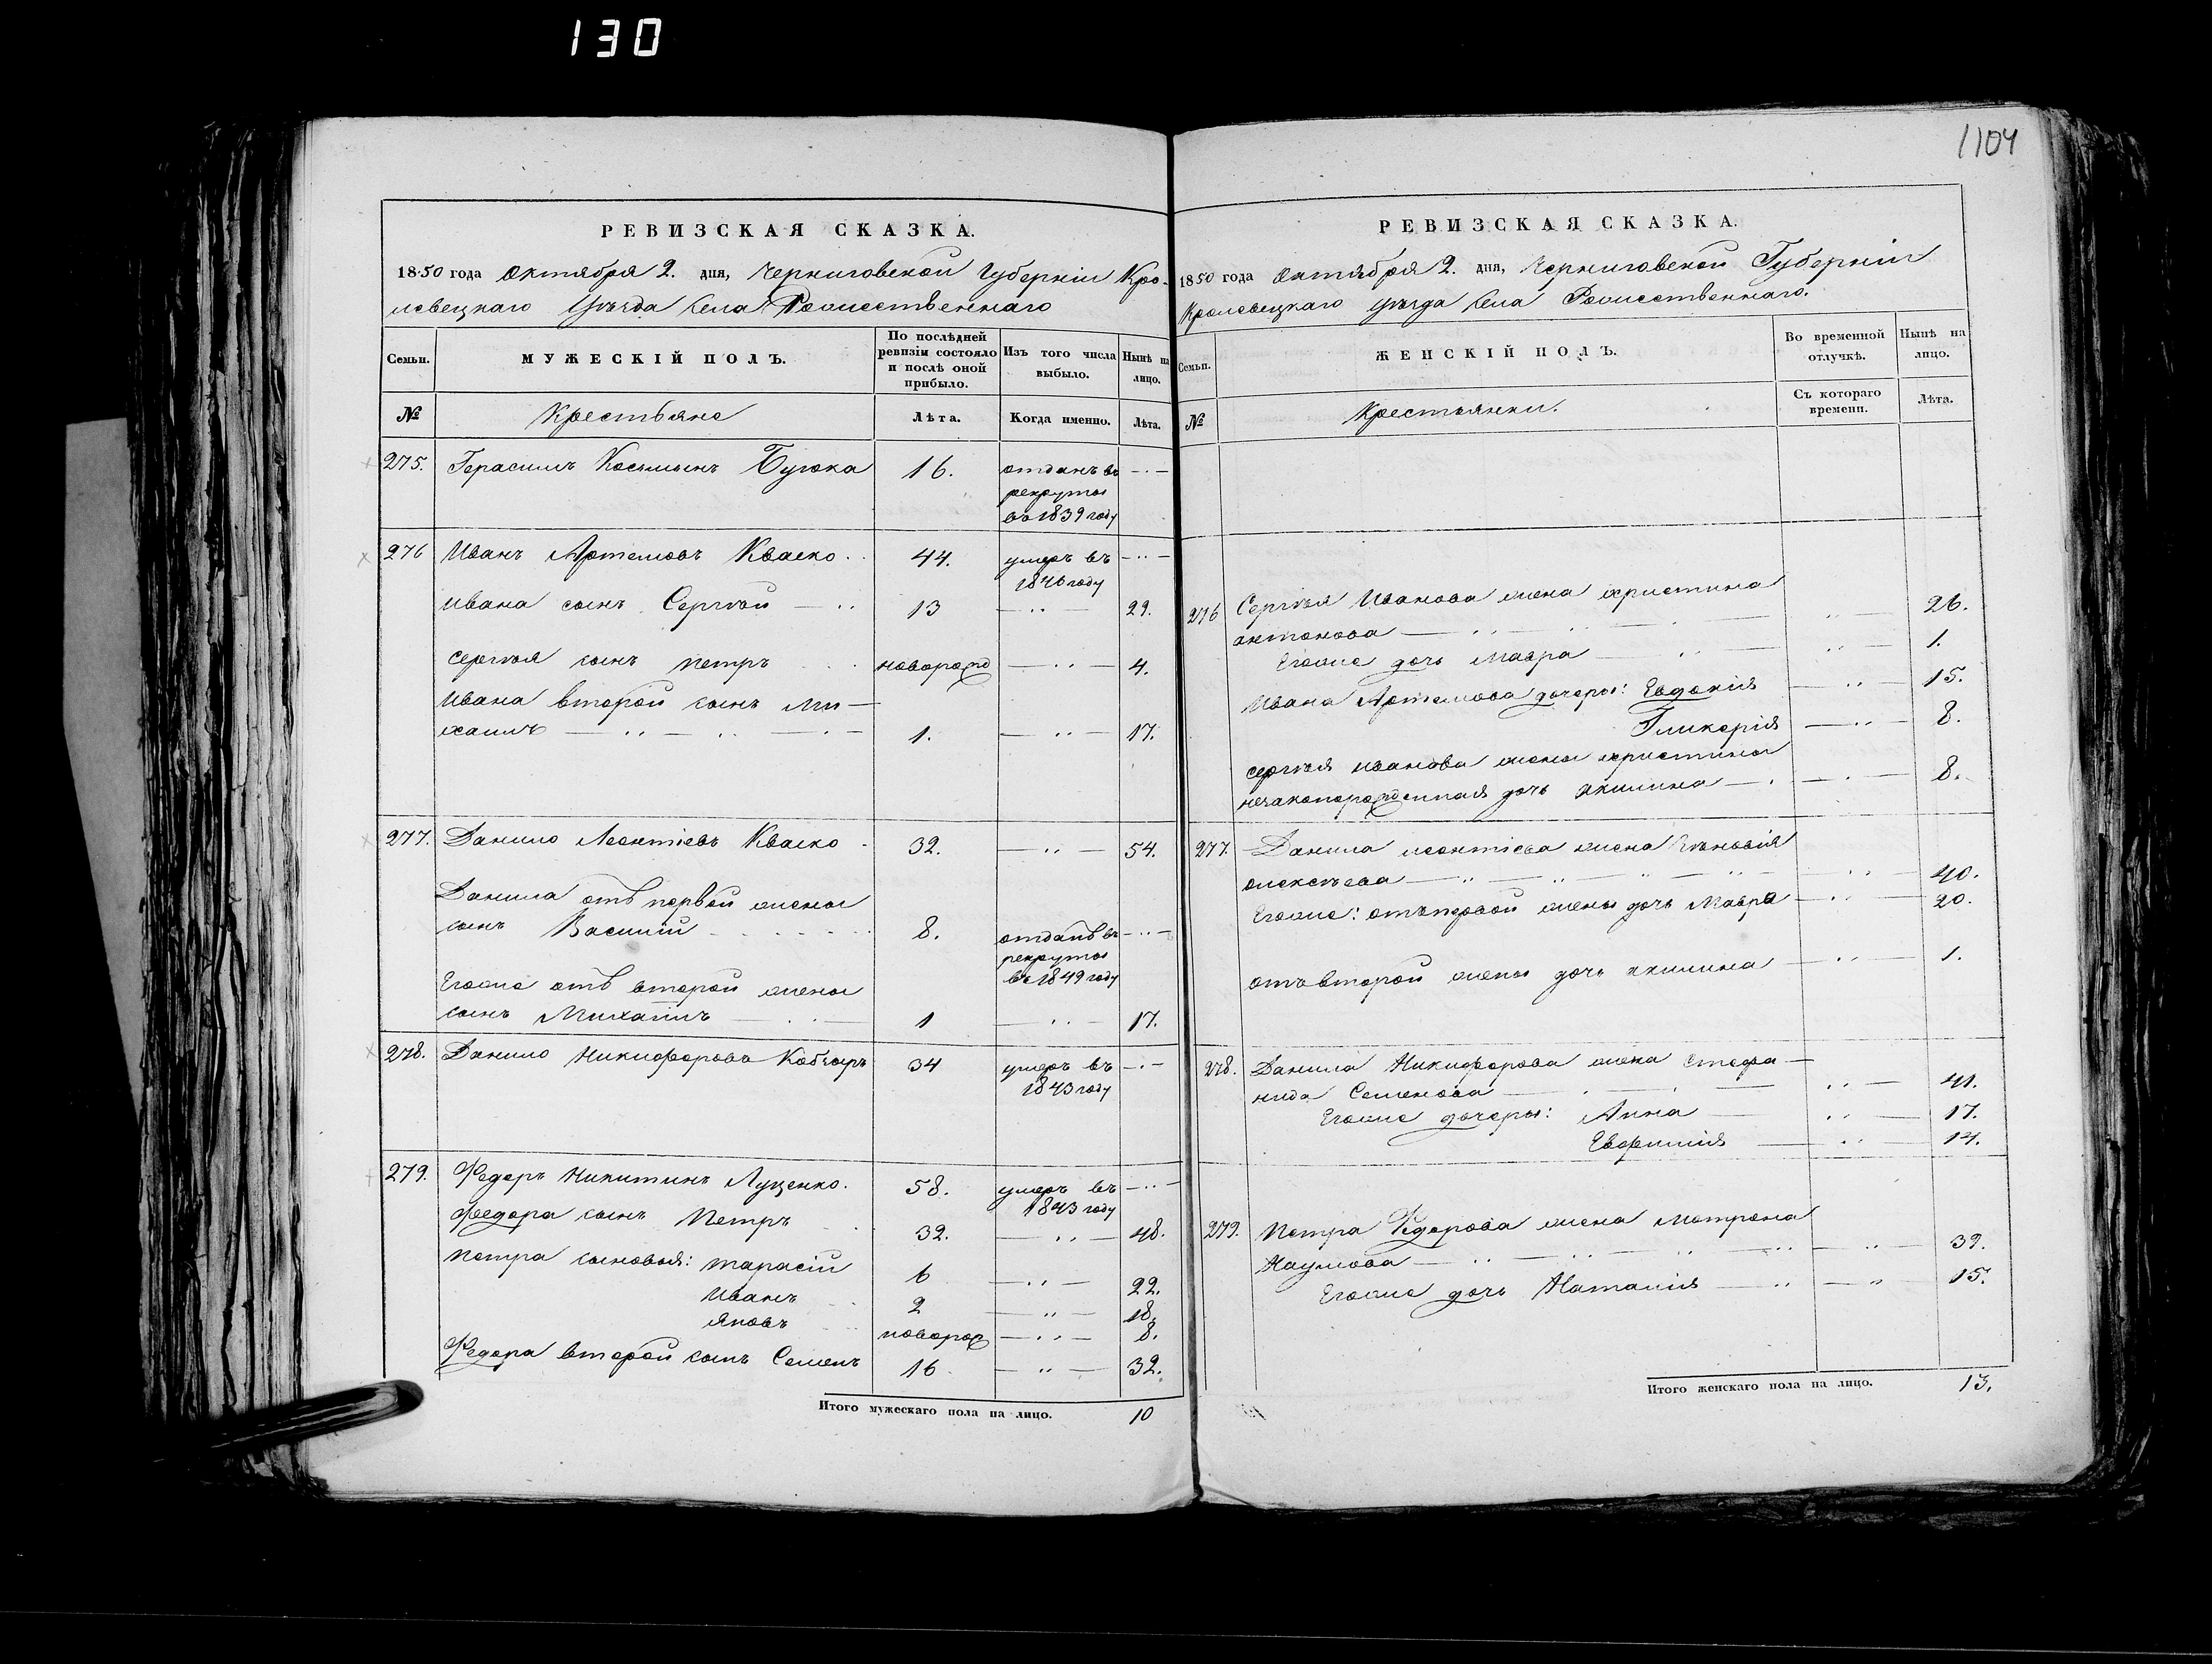 130
1104
РЕВИЗСКАЯ СКАЗКА.
1850 года Октября 2. дня, Черниговской Губерніи Кро-
левецкаго Уѣзда Села Рожественнаго
Семьи.
МУЖЕСКІЙ ПОЛЪ.
По послѣдней ревизіи состояло и послѣ оной прибыло.
Изъ того числа выбыло.
Нынѣ на лицо.
№
Крестьяне
Лѣта.
Когда именно.
Лѣта.
275. Герасимъ Косминъ Бугока 16. отданъ въ — . —
рекруты
въ 1839 году
276 Иванъ Артемовъ Кваско . . 44. умеръ въ — .. —
1846 году
Ивана сынъ Сергѣй — .. 13 — .. — 29.
Сергѣя сынъ Петръ . . новорожд — .. — 4.
Ивана второй сынъ Ми—
хаилъ — .. — .. — . — 1. — .. — 17.
277. Данило Леонтіевъ Кваско . 32. — .. — 54.
Данила отъ первой жены
сынъ Василій 8. отданъ въ — .. —
рекруты
въ 1849 году
Егоже отъ второй жены
сынъ Михаилъ — . . — 1 — .. — 17.
278. Данило Никифоровъ Кобзарь 34 умеръ въ — . —
1843 году
279. Федоръ Никитинъ Луценко. 58. умеръ въ — .. —
1843 году
Федора сынъ Петръ 32. — .. — 48.
Петра сыновья: Тарасій 6 — .. — 22.
Иванъ 2 — .. — 18.
Яковъ новорож — .. — 8.
Федора второй сынъ Семенъ 16 — .. — 32.
Итого мужескаго пола на лицо. 10
РЕВИЗСКАЯ СКАЗКА.
1850 года Октября 2. дня, Черниговской Губерніи
Кролевецкаго уѣзда Села Рожественнаго.
Семьи.
ЖЕНСКІЙ ПОЛЪ.
Во временной отлучкѣ.
Нынѣ на лицо.
№
Крестьянки.
Съ котораго времени.
Лѣта.
276 Сергѣя Иванова жена Христина
Антонова — .. — .. — . — .. 26.
Егоже дочь Мавра — .. — .. — 1.
Ивана Артемова дочери: Евдокія — .. — 15.
Гликерія — .. — 8.
Сергѣя Иванова жены Христины
незаконорожденная дочь Акилина — . — . — 8.
277. Данила Леонтіева жена
Алексѣева — .. — .. — .. — .. — .. — 40.
Егоже: отъ первой жены дочь Мавра — .. — 20.
отъ второй жены дочь Акилина — .. — 1.
278. Данила Никифорова жена Стефа—
нида Семенова — . — . — .. — 41.
Егоже дочери: Анна — .. — 17.
Евфимія — .. — 14.
279. Петра Федорова жена Матрона
Наумова — .. — .. — .. — .. — .. — 39.
Егоже дочь Наталія — .. — " — 15.
Итого женскаго пола на лицо. 13.